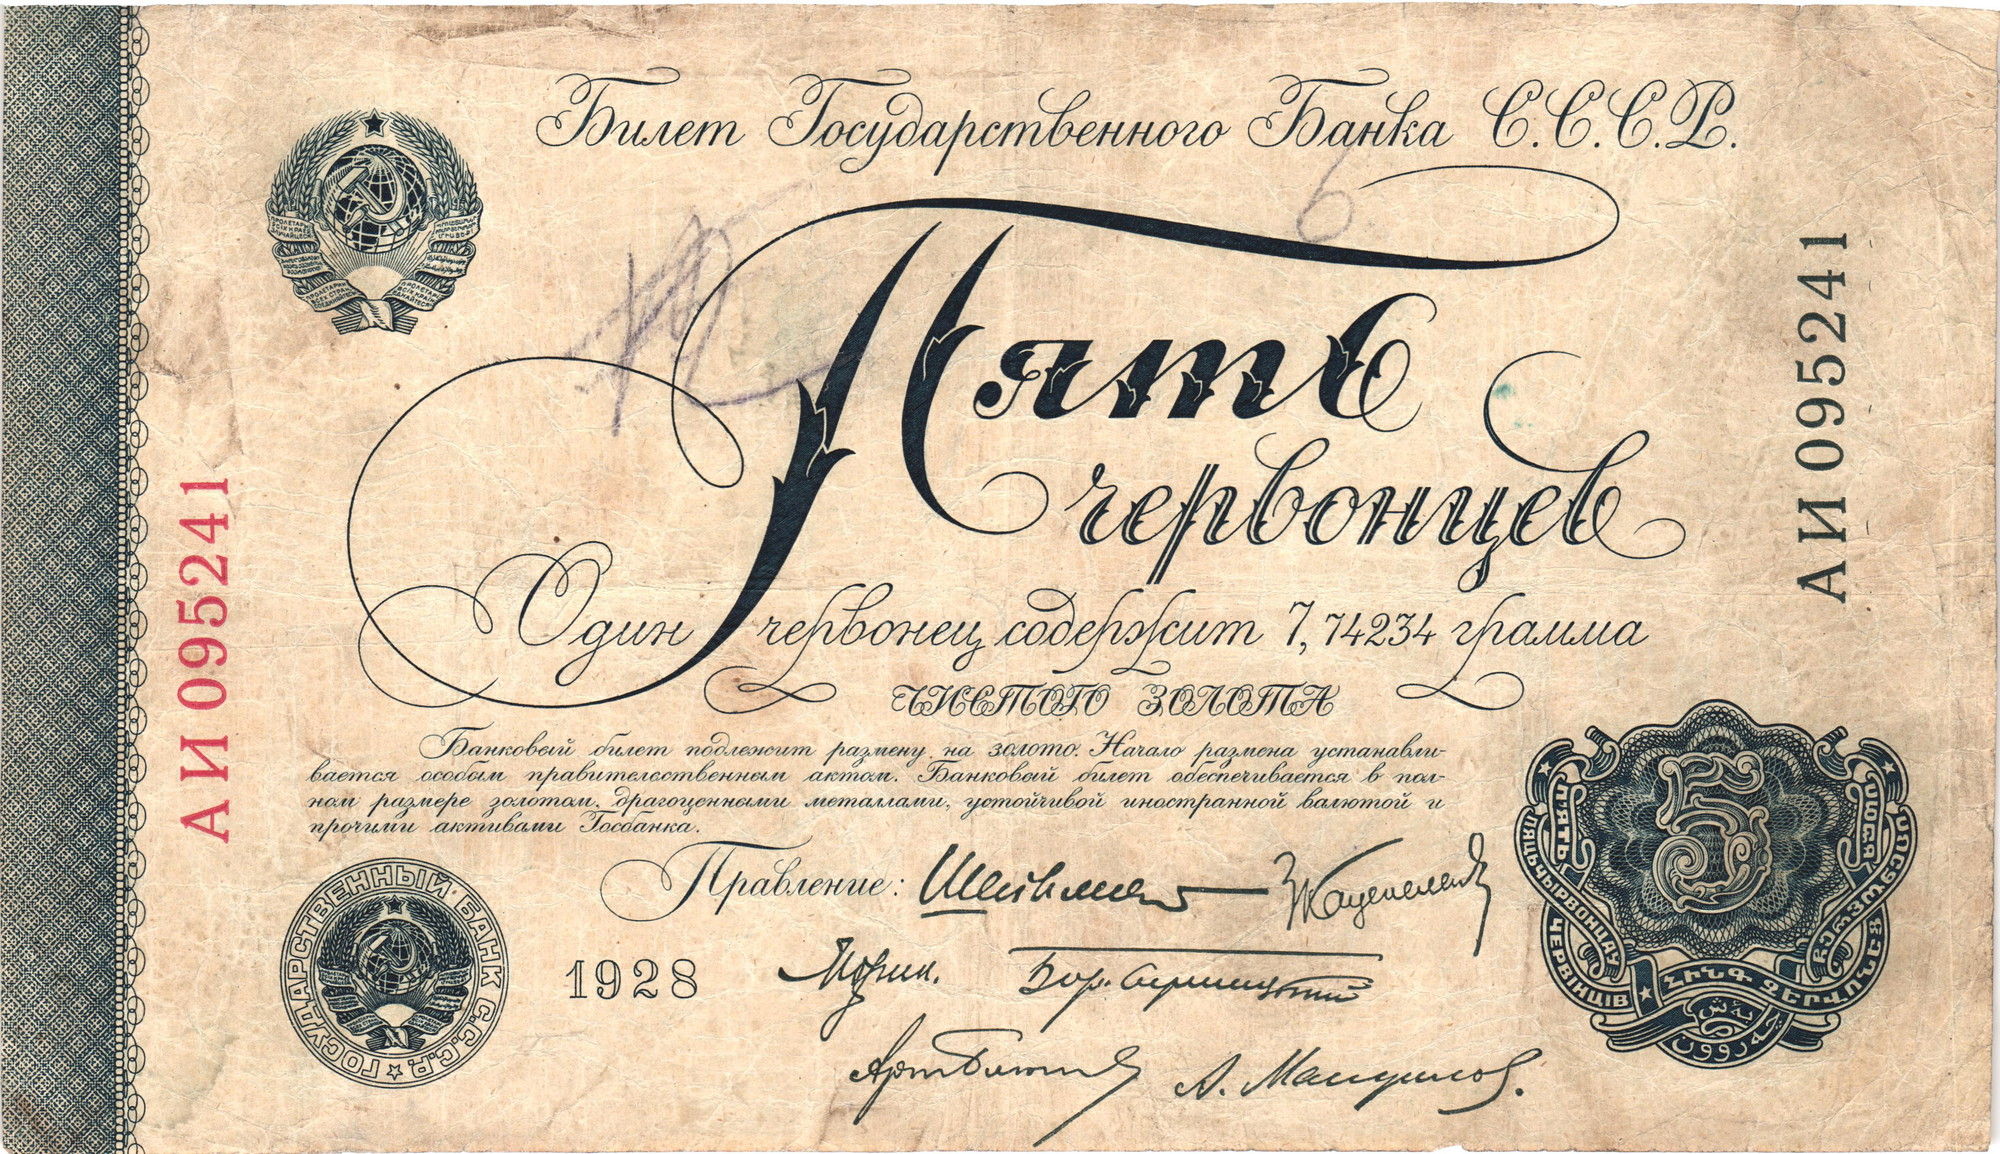 Билет Государственного Банка С.С.С.Р.
Пять
червонцев
Один червонец содержит 7,74234 грамма
ЧИСТОГО ЗОЛОТА
Банковый билет подлежит размену на золото. Начало размена устанавли-
вается особым правительственным актом. Банковый билет обеспечивается в пол-
ном размере золотом, драгоценными металлами, устойчивой иностранной валютой и
прочими активами Госбанка.
Правление:
1928
АИ 095241
АИ 095241
ГОСУДАРСТВЕННЫЙ БАНК С.С.С.Р.
5
ПЯТЬ
ЧЕРВІНЦІВ
ՀԻՆԳ ՉԵՐՎՈՆԵՑ